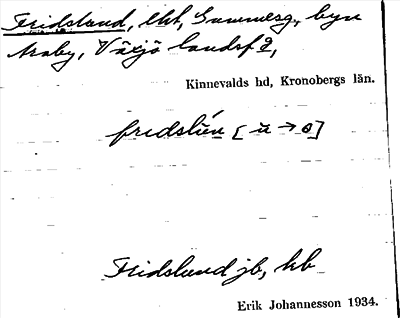 Fridslund, lht, Gammelsg, byn
Araby, Växjö landsf9,
Kinnevalds hd, Kronobergs län.
fridslún [ u → o]
Fridslund jb, kb
Erik Johannesson 1934.